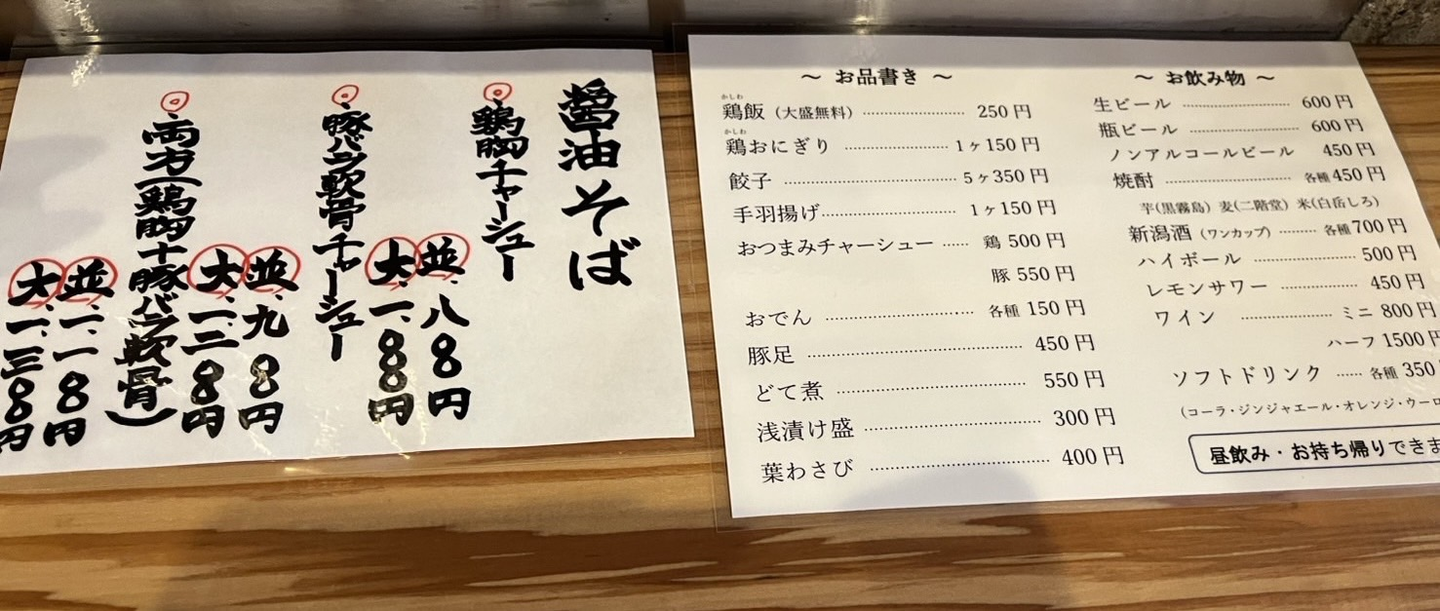 醤油そば
◎・鶏胸チャーシュー
並、八〇〇円
大、一、〇〇〇円
◎・豚バラ軟骨チャーシュー
並、九〇〇円
大、一、二〇〇円
◎・両方(鶏胸十豚バラ軟骨)
並、一、一〇〇円
大、一、三〇〇円
〜 お品書き 〜
鶏飯(かしわ)(大盛無料) 250円
鶏(かしわ)おにぎり 1ヶ150円
餃子 5ヶ350円
手羽揚げ 1ヶ150円
おつまみチャーシュー 鶏 500円
豚 550円
おでん 各種 150円
豚足 450円
どて煮 550円
浅漬け盛 300円
葉わさび 400円
〜 お飲み物 〜
生ビール 600円
瓶ビール 600円
ノンアルコールビール 450円
焼酎 各種450円
芋(黒霧島) 麦(二階堂) 米(白岳しろ)
新潟酒(ワンカップ) 各種700円
ハイボール 500円
レモンサワー 450円
ワイン ミニ 800円
ハーフ 1500円
ソフトドリンク 各種 350
(コーラ・ジンジャエール・オレンジ・ウーロ
昼飲み・お持ち帰りできま